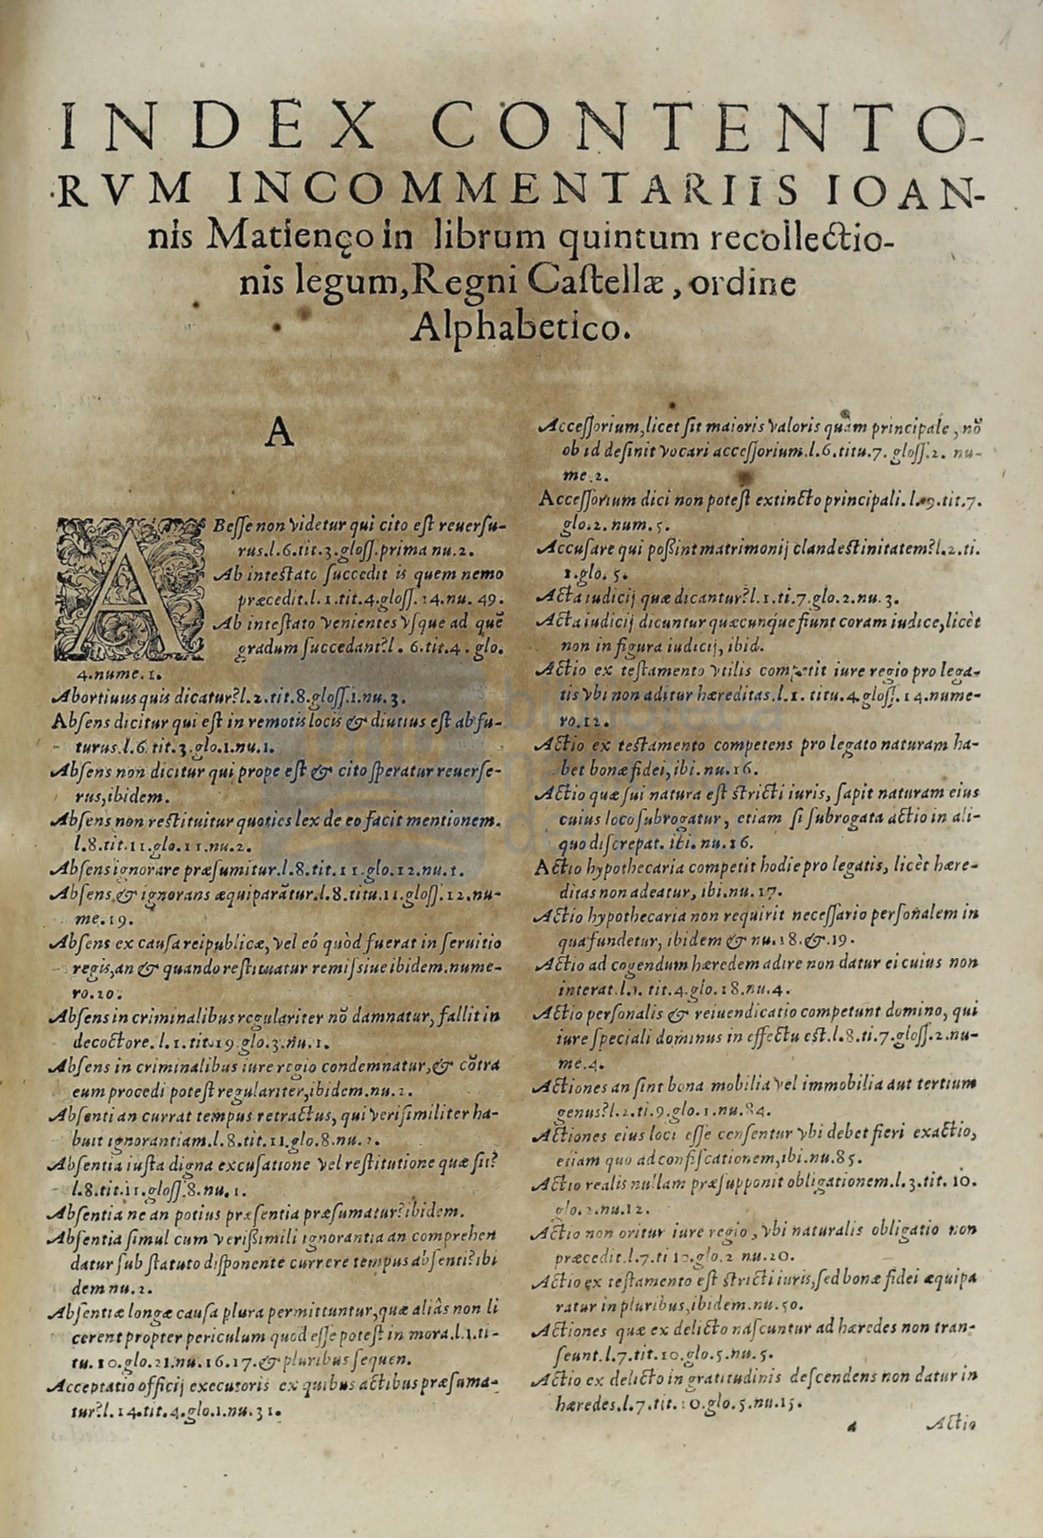 INDEX CONTENTO-
RVM IN COMMENTARIIS IOAN-
nis Matienço in librum quintum recollectio-
nis legum, Regni Caſtellæ, ordine
Alphabetico.
A
ABeſſe non videtur qui cito eſt reuerſu-
rus.l.6.tit.3.gloſſ.prima nu.2.
Ab inteſtato ſuccedit is quem nemo
præcedit.l.1.tit.4.gloſſ.14.nu.49.
Ab inteſtato venientes vſque ad quē
gradum ſuccedant?l.6.tit.4.glo.
4.nume.1.
Abortiuus quis dicatur?l.2.tit.8.gloſſ.1.nu.3.
Abſens dicitur qui eſt in remotis locis & diutius eſt abfu-
turus.l.6.tit.3.glo.1.nu.1.
Abſens non dicitur qui prope eſt & cito ſperatur reuerſe-
rus,ibidem.
Abſens non reſtituitur quoties lex de eo facit mentionem.
l.8.tit.11.glo.11.nu.2.
Abſens ignorare præſumitur.l.8.tit.11.glo.12.nu.1.
Abſens,& ignorans æquiparātur.l.8.titu.11.gloſſ.12.nu-
me.19.
Abſens ex cauſa reipublicæ,vel eò quòd fuerat in ſeruitio
regis,an & quando reſtituatur remiſsiue ibidem.nume-
ro.20.
Abſens in criminalibus regulariter nō damnatur,fallit in
decoctore.l.1.tit.19.glo.3.nu.1.
Abſens in criminalibus iure regio condemnatur,& cōtra
eum procedi poteſt regulariter,ibidem.nu.2.
Abſenti an currat tempus retractus, qui veriſimiliter ha-
buit ignorantiam.l.8.tit.11.glo.8.nu.2.
Abſentia iuſta digna excuſatione vel reſtitutione quæ ſit?
l.8.tit.11.gloſſ.8.nu.1.
Abſentia ne an potius præſentia præſumatur?ibidem.
Abſentia ſimul cum veriſsimili ignorantia an comprehen
datur ſub ſtatuto diſponente currere tempus abſenti?ibi
dem nu.2.
Abſentiæ longæ cauſa plura permittuntur,quæ aliâs non li
cerent propter periculum quod eſſe poteſt in mora.l.1.ti-
tu.10.glo.21.nu.16.17.& pluribus ſequen.
Acceptatio officij executoris ex quibus actibus præſuma-
tur?l.14.tit.4.glo.1.nu.31.
Acceſſorium,licet ſit maioris valoris quàm principale , nō
ob id deſinit vocari acceſſorium.l.6.titu.7.gloſſ.2. nu-
me.2.
Acceſſorium dici non poteſt extincto principali.l.9.tit.7.
glo.2.num.5.
Accuſare qui poſsint matrimonij clandeſtinitatem?l.2.ti.
1.glo.5.
Acta iudicij quæ dicantur?l.1.ti.7.glo.2.nu.3.
Acta iudicij dicuntur quæcunque fiunt coram iudice,licèt
non in figura iudicij, ibid.
Actio ex teſtamento vtilis competit iure regio pro lega-
tis vbi non aditur hæreditas.l.1. titu.4.gloſſ.14.nume-
ro.12.
Actio ex teſtamento competens pro legato naturam ha-
bet bonæ fidei,ibi.nu.16.
Actio quæ ſui natura eſt ſtricti iuris, ſapit naturam eius
cuius loco ſubrogatur, etiam ſi ſubrogata actio in ali-
quo diſcrepat. ibi.nu.16.
Actio hypothecaria competit hodie pro legatis, licèt hære-
ditas non adeatur, ibi.nu.17.
Actio hypothecaria non requirit neceſſario perſonalem in
qua fundetur, ibidem & nu.18.&.19.
Actio ad cogendum hæredem adire non datur ei cuius non
interat.l.1. tit.4.glo.18.nu.4.
Actio perſonalis & reiuendicatio competunt domino, qui
iure ſpeciali dominus in effectu eſt.l.8.ti.7.gloſſ.2.nu-
me.4.
Actiones an ſint bona mobilia vel immobilia aut tertium
genus?l.2.ti.9.glo.1.nu.84.
Actiones eius loci eſſe cenſentur vbi debet fieri exactio,
etiam quo ad confiſcationem,ibi.nu.85.
Actio realis nullam præſupponit obligationem.l.3.tit.10.
glo.2.nu.12.
Actio non oritur iure regio , vbi naturalis obligatio non
præcedit.l.7.ti 10.glo.2 nu.20.
Actio ex teſtamento eſt ſtricti iuris,ſed bonæ fidei æquipa
ratur in pluribus,ibidem.nu.50.
Actiones quæ ex delicto naſcuntur ad hæredes non tran-
ſeunt.l.7.tit.10.glo.5.nu.5.
Actio ex delicto ingratitudinis deſcendens non datur in
hæredes.l.7.tit.10.glo.5.nu.15.
a Actio